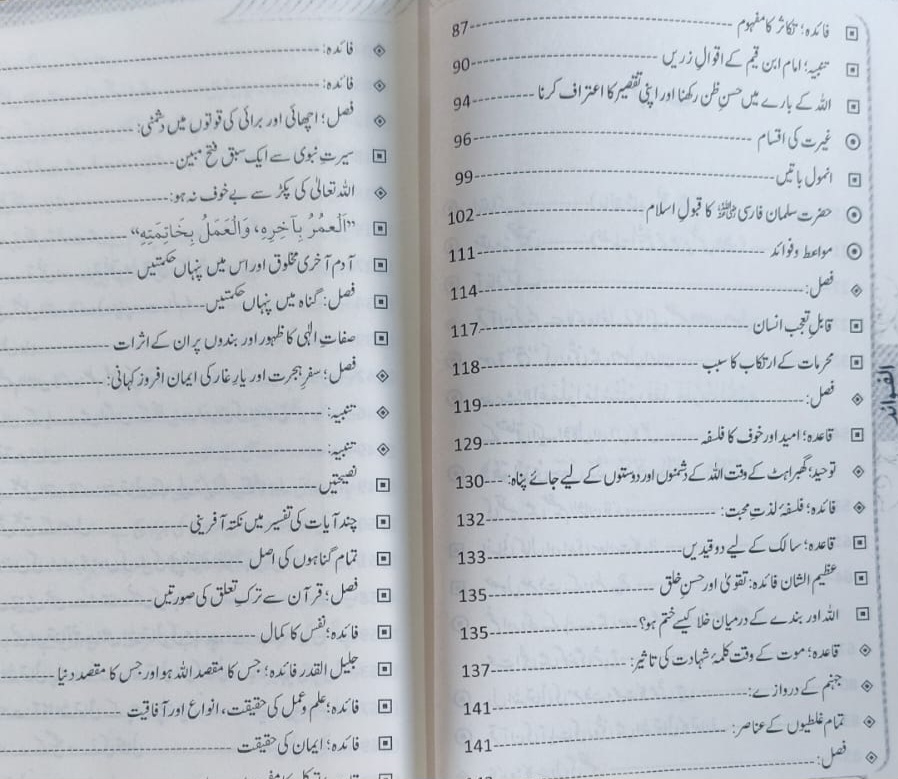 فائدہ؛ تکاثر کا مفہوم 87
تنبیہ؛ امام ابن قیم کے اقوالِ زریں 90
اللہ کے بارے میں حسنِ ظن رکھنا اور اپنی تقصیر کا اعتراف کرنا 94
غیرت کی اقسام 96
انمول باتیں 99
حضرت سلمان فارسی ﷜ کا قبولِ اسلام 102
مواعظ و فوائد 111
فصل: 114
قابلِ تعجب انسان 117
محرمات کے ارتکاب کا سبب 118
فصل: 119
قاعدہ؛ امید اور خوف کا فلسفہ 129
توحید؛ گھبراہٹ کے وقت اللہ کے دشمنوں اور دوستوں کے لیے جائے پناہ: 130
فائدہ؛ فلسفۂ لذتِ محبت: 132
قاعدہ؛ سالک کے لیے دو قیدیں 133
عظیم الشان فائدہ: تقویٰ اور حسنِ خلق 135
اللہ اور بندے کے درمیان خلا کیسے ختم ہو؟ 135
قاعدہ؛ موت کے وقت کلمۂ شہادت کی تاثیر: 137
جہنم کے دروازے: 141
تمام غلطیوں کے عناصر: 141
فصل:
الفوائد
فائدہ:
فائدہ:
فصل؛ اچھائی اور برائی کی قوتوں میں دشمنی:
سیرتِ نبوی سے ایک سبق فتح مبین
اللہ تعالیٰ کی پکڑ سے بے خوف نہ ہو:
”اَلْعُمُرُ بِآخِرِهِ، وَالْعَمَلُ بِخَاتِمَتِهِ“
آدم آخری مخلوق اور اس میں پنہاں حکمتیں
فصل: گناہ میں پنہاں حکمتیں
صفاتِ الٰہی کا ظہور اور بندوں پر ان کے اثرات
فصل؛ سفرِ ہجرت اور یارِ غار کی ایمان افروز کہانی:
تنبیہ:
تنبیہ:
نصیحتیں
چند آیات کی تفسیر میں نکتہ آفرینی
تمام گناہوں کی اصل
فصل؛ قرآن سے ترکِ تعلق کی صورتیں
فائدہ؛ نفس کا کمال
جلیل القدر فائدہ؛ جس کا مقصد اللہ ہو اور جس کا مقصد دنیا
فائدہ؛ علم و عمل کی حقیقت، انواع اور آفاقیت
فائدہ؛ ایمان کی حقیقت